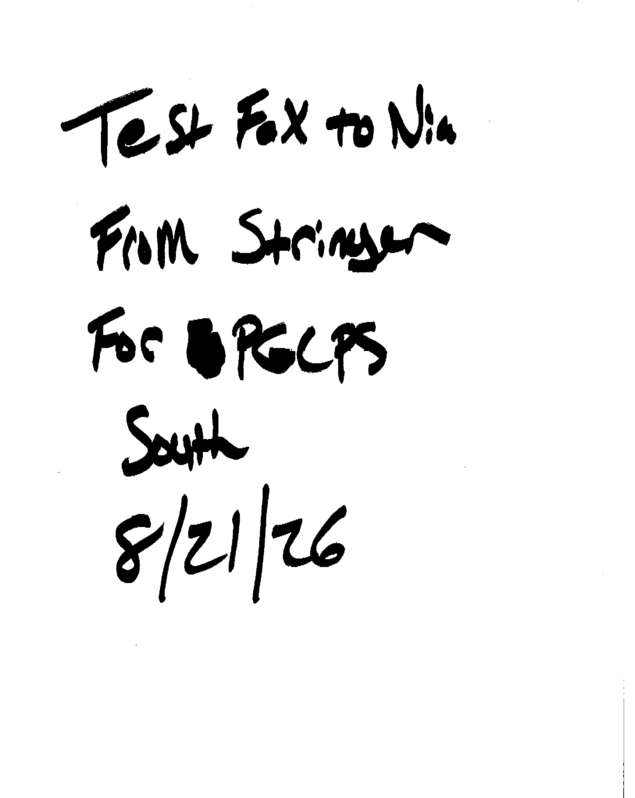 Test Fax to Nia
From Stringer
For PGCPS
South
8/21/26